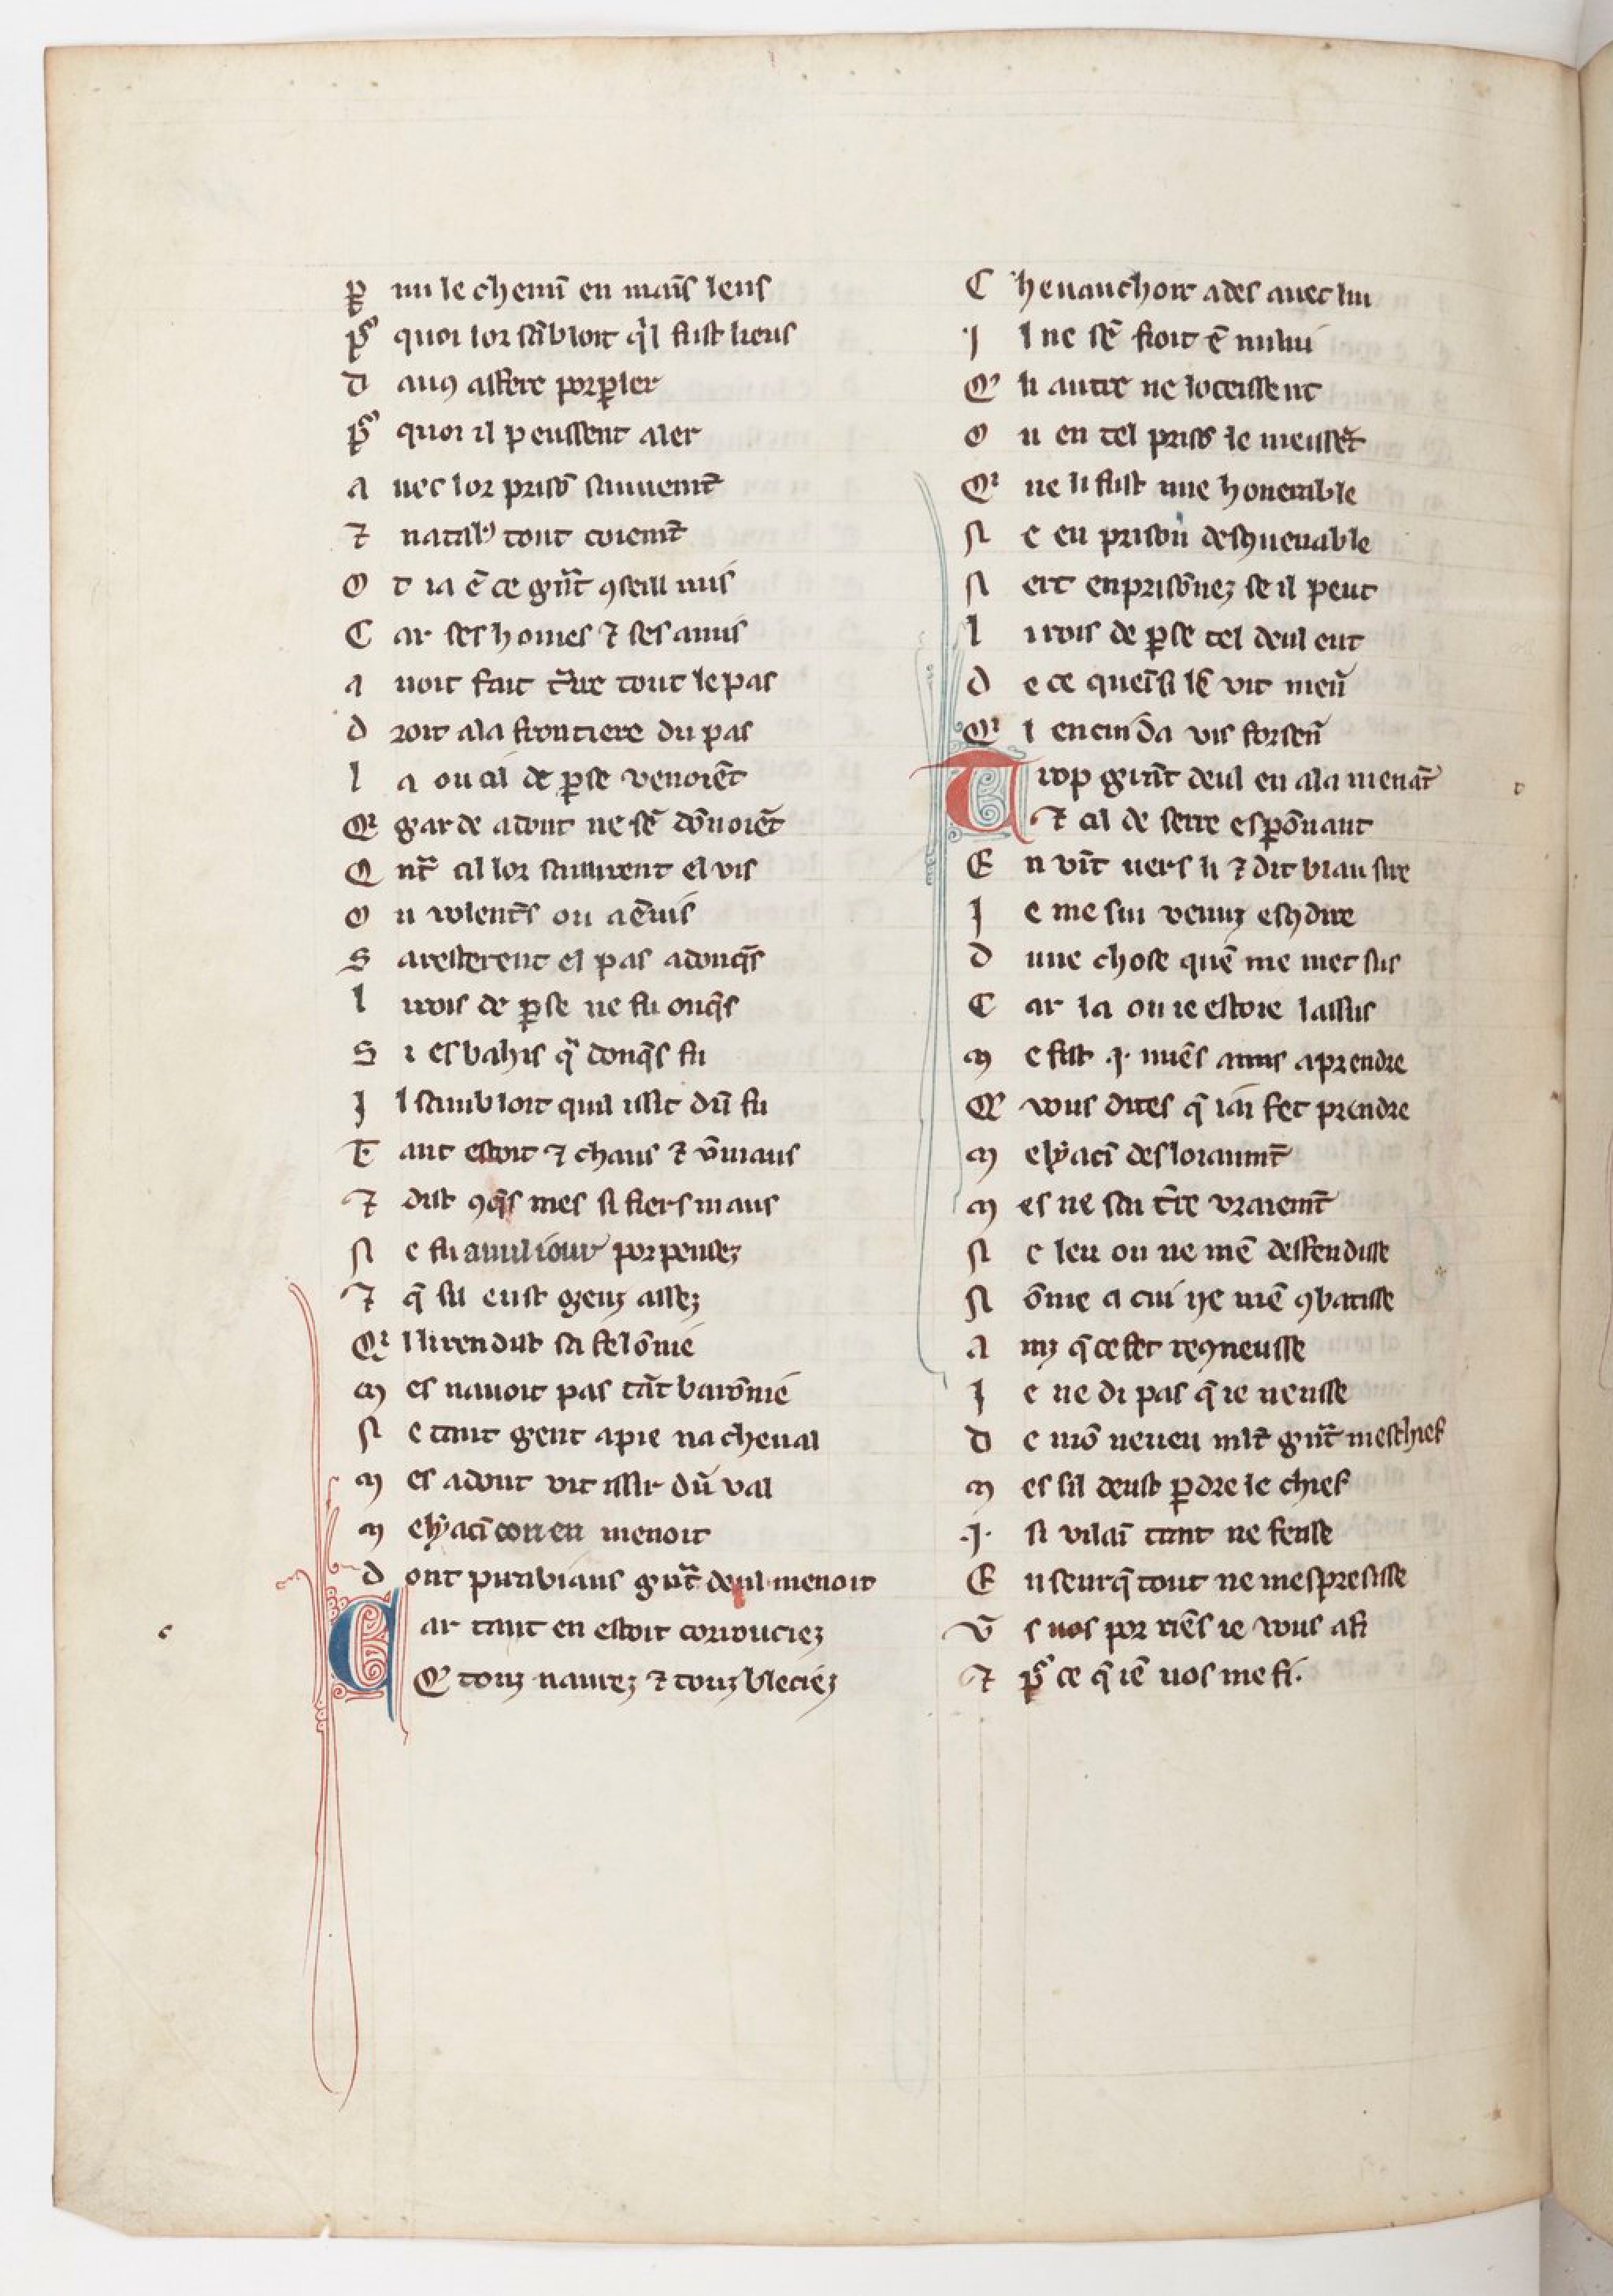 ꝑ mi le chemī en mai̅s leus
p̃ quoi lor sāb loit qͥl fust lieus
D auꝯ affere por ꝑler
p̃ quoi il peussent aler
A uec lor prisō sauuemēt
⁊ natalꝰ tout coiemēt
O t ia ē ce gͣnt ꝯseill mis
C ar ses homes ⁊ ses amis
A uoit fait tͣire tout le pas
D roit a la frontiere du pas
L a ou cil de ꝑse venoiēt
Q̇ garde adont ne sē dōnoiēt
Q nͣt cil lor saillirent el vis
O u volentͥs ou a ēuis
S aresterent el pas adonq̄s
L i rois de ꝑse ne fu onq̄s
S i esbahis qͣ donq̄s fu
I l sambloit quil issit dū fu
T ant estoit ⁊ chaus ⁊ v̄maus
⁊ dist ꝯq̄s mes si fiers maus
N e fu a nul iour porpensez
⁊ q̄ sil eust genz assez
Qͥ l li rendist sa felōnie
M es nauoit pas tāt barōnie
N e tant gent a pie na cheual
M es adont vit issir dū val
M elẏacī con en menoit
D ont purabians gͣnt deul menoit
C ar tant en estoit corrouciez
Q̇ touz naurez ⁊ touz bleciez
C heuauchoit ades auec lui
I l ne sē fioit ē nului
Q̇ li autre ne loceissent
O u en tel prisō le meissēt
Qͥ ne li fust mie honerable
N e en prison desꝯuenable
N ert enprisōnez se il peut
L i rois de ꝑse tel deul eut
D e ce queīsi lē vit menͬ
Qͥ l en cuida vis forsenͬ
T rop grant deul en ala menāt
⁊ cil de serre espōnant
E n vīt uers li ⁊ dit biau sire
I e me sui venuz esꝯdire
D une chose quē me met sus
C ar la ou ie estoie lassus
M e fist .j. miēs amis aprendre
Q̇ vous dites q̄ iai fet prendre
M elẏacī desloiaumēt
M es ne sai tͤre vraiemēt
N e leu ou ne mē deffendisse
N ōme a cui ie ne mē ꝯbatisse
A inz q̄ ce fet reꝯneusse
I e ne di pas q̄ ie neusse
D e mō neueu mlt̄ gͣnt meschief
M es sil deust ꝑdre le chief
.j. si vilaī tant ne feisse
E n seurq̄ tout ne mespresisse
V̄ s uos por riēs ie vous afi
⁊ p̃ ce q̄ iē uos me fi.